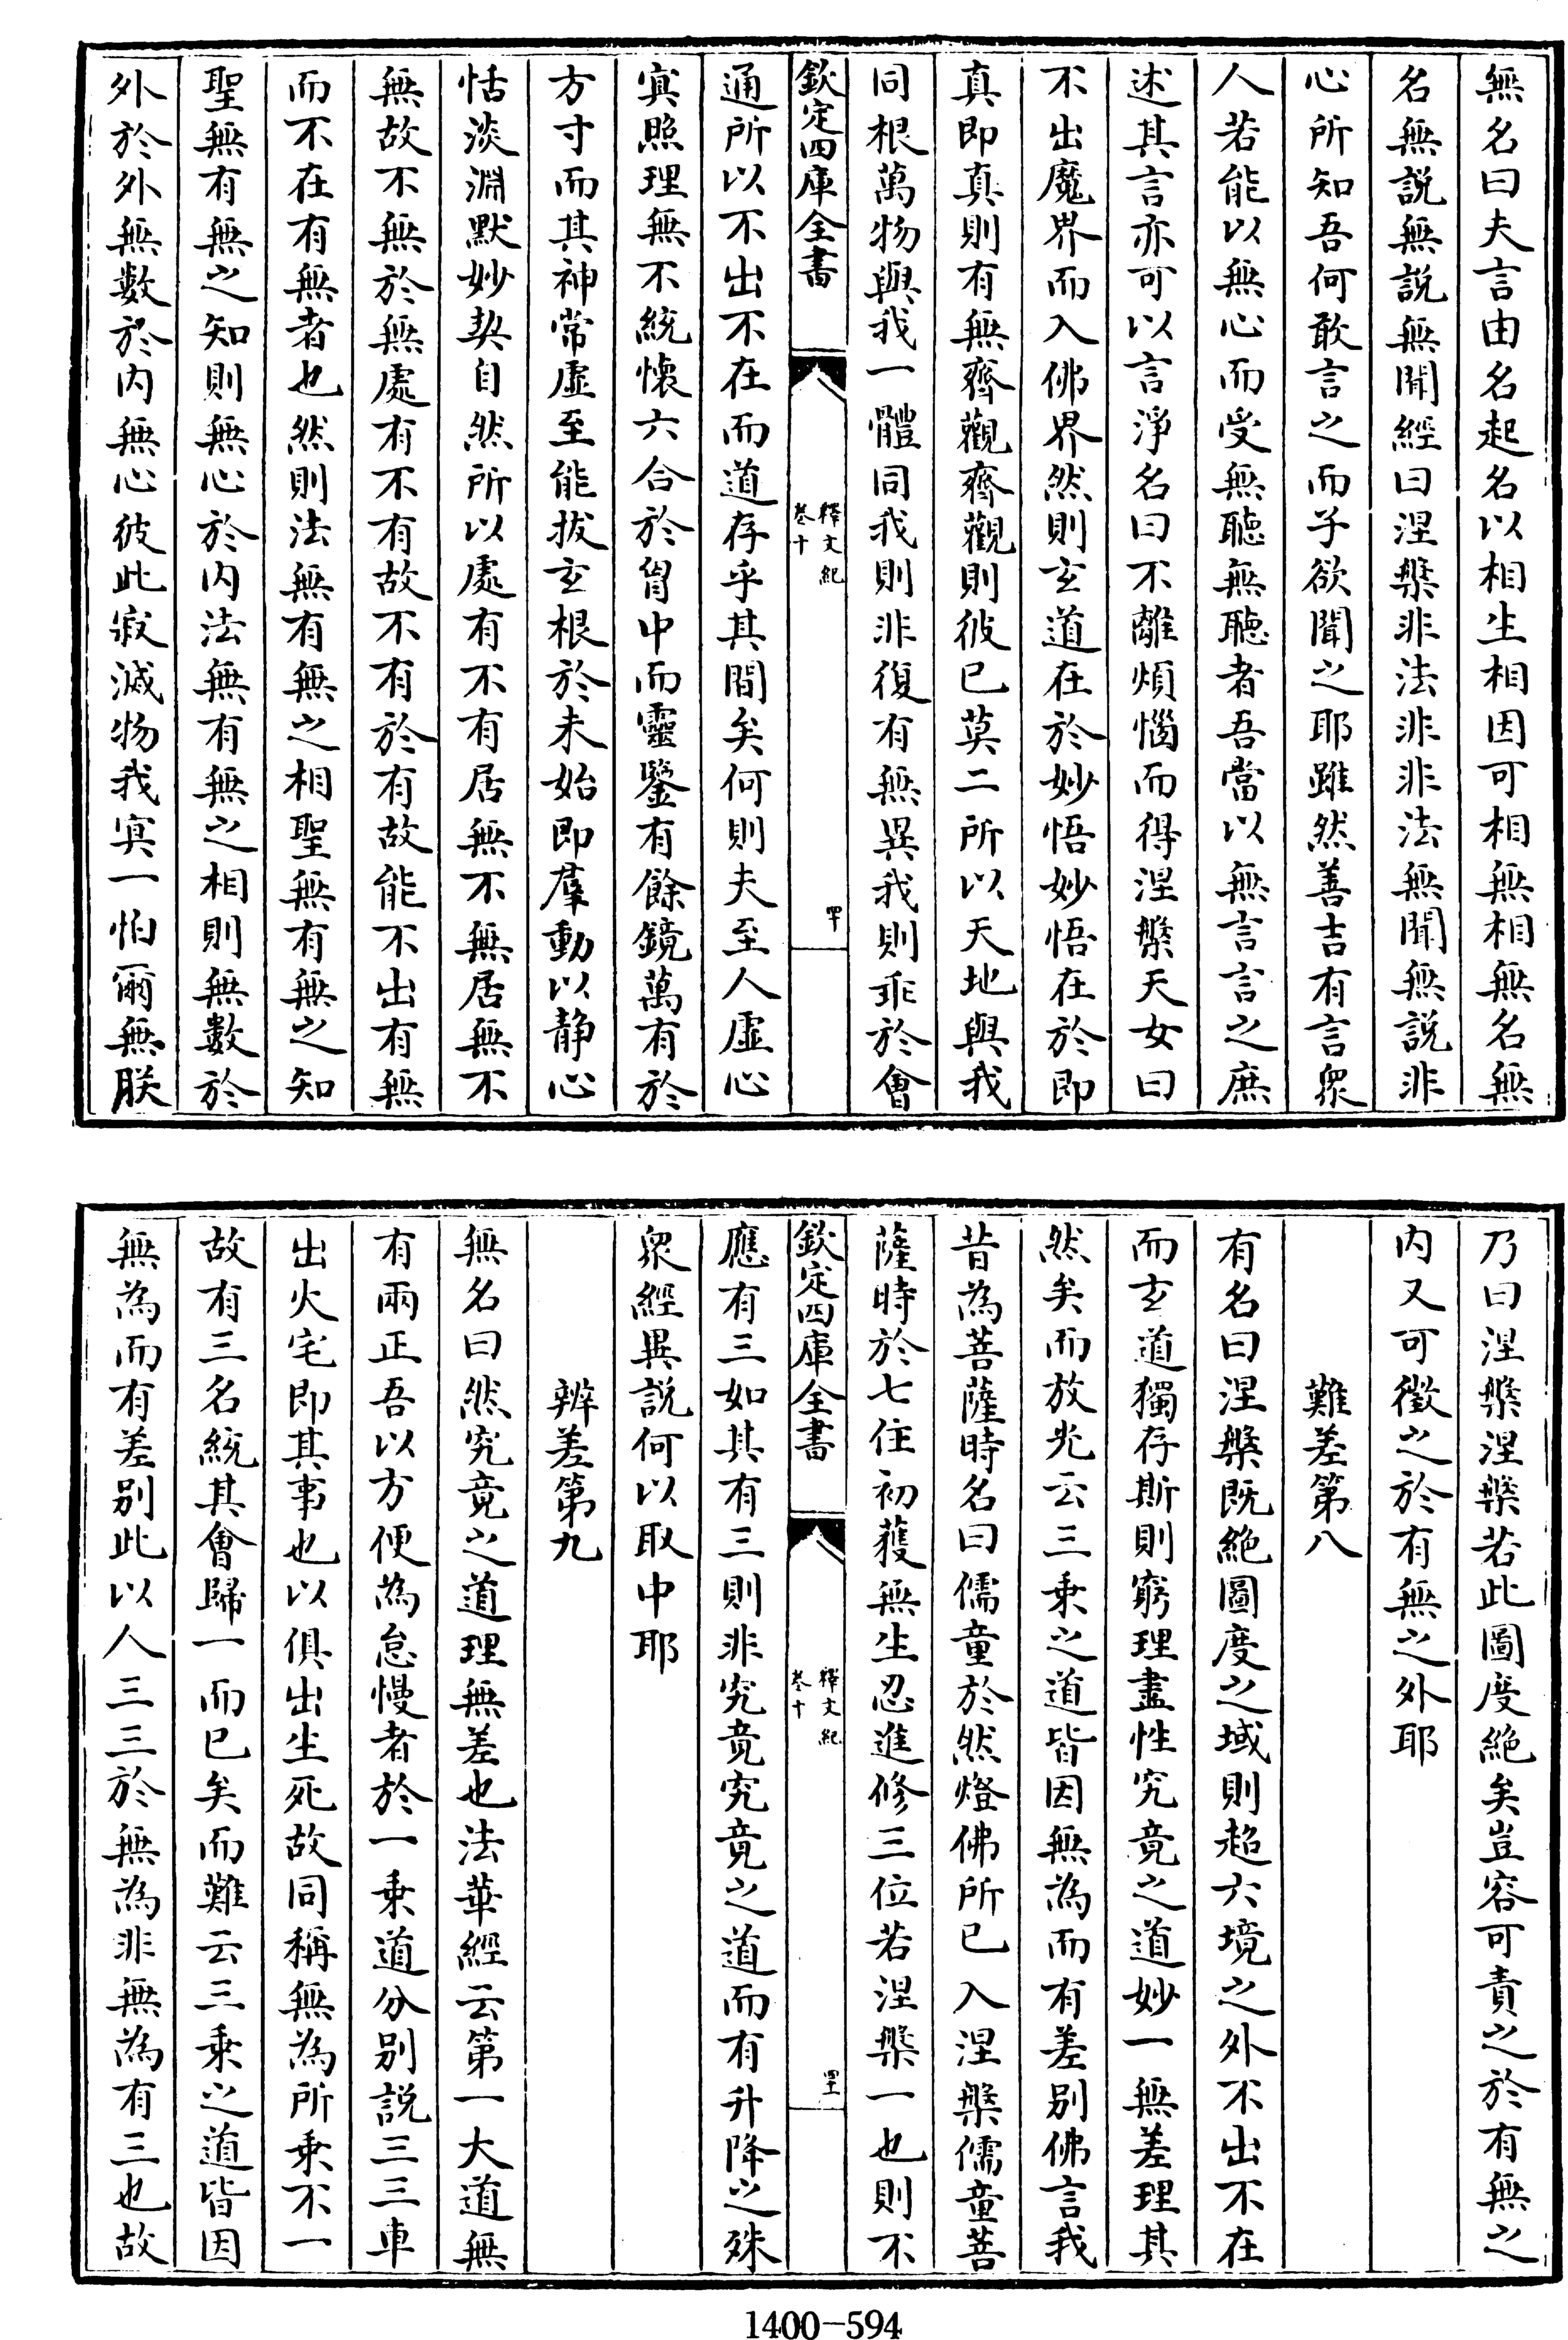 無名曰夫言由名起名以相生相因可相無相無名無
名無説無説無聞經曰涅槃非法非非法無聞無説非
心所知吾何敢言之而子欲聞之耶雖然善吉有言衆
人若能以無心而受無聽無聽者吾當以無言言之庶
述其言亦可以言淨名曰不離煩惱而得涅槃天女曰
不出魔界而入佛界然則玄道在於妙悟妙悟在於即
真即真則有無齊觀齊觀則彼已莫二所以天地與我
同根萬物與我一體同我則非復有無異我則乖於會
欽定四庫全書
釋文紀
卷十
四十
通所以不出不在而道存乎其間矣何則夫至人虛心
冥照理無不統懷六合於胷中而靈鑒有餘鏡萬有於
方寸而其神常虛至能拔玄根於未始即羣動以静心
恬淡淵默妙契自然所以處有不有居無不無居無不
無故不無於無處有不有故不有於有故能不出有無
而不在有無者也然則法無有無之相聖無有無之知
聖無有無之知則無心於内法無有無之相則無數於
外於外無數於内無心彼此寂滅物我冥一怕爾無朕
乃曰涅槃涅槃若此圖度絶矣豈容可責之於有無之
内又可徵之於有無之外耶
難差第八
有名曰涅槃既絶圖度之域則超六境之外不出不在
而玄道獨存斯則窮理盡性究竟之道妙一無差理其
然矣而放光云三乘之道皆因無為而有差别佛言我
昔為菩薩時名曰儒童於然燈佛所已入涅槃儒童菩
薩時於七住初獲無生忍進修三位若涅槃一也則不
欽定四庫全書
釋文紀
卷十
四十一
應有三如其有三則非究竟究竟之道而有升降之殊
衆經異説何以取中耶
辨差第九
無名曰然究竟之道理無差也法華經云第一大道無
有兩正吾以方便為怠慢者於一乘道分别説三三車
出火宅即其事也以俱出生死故同稱無為所乘不一
故有三名統其會歸一而已矣而難云三乘之道皆因
無為而有差别此以人三三於無為非無為有三也故
1400-594